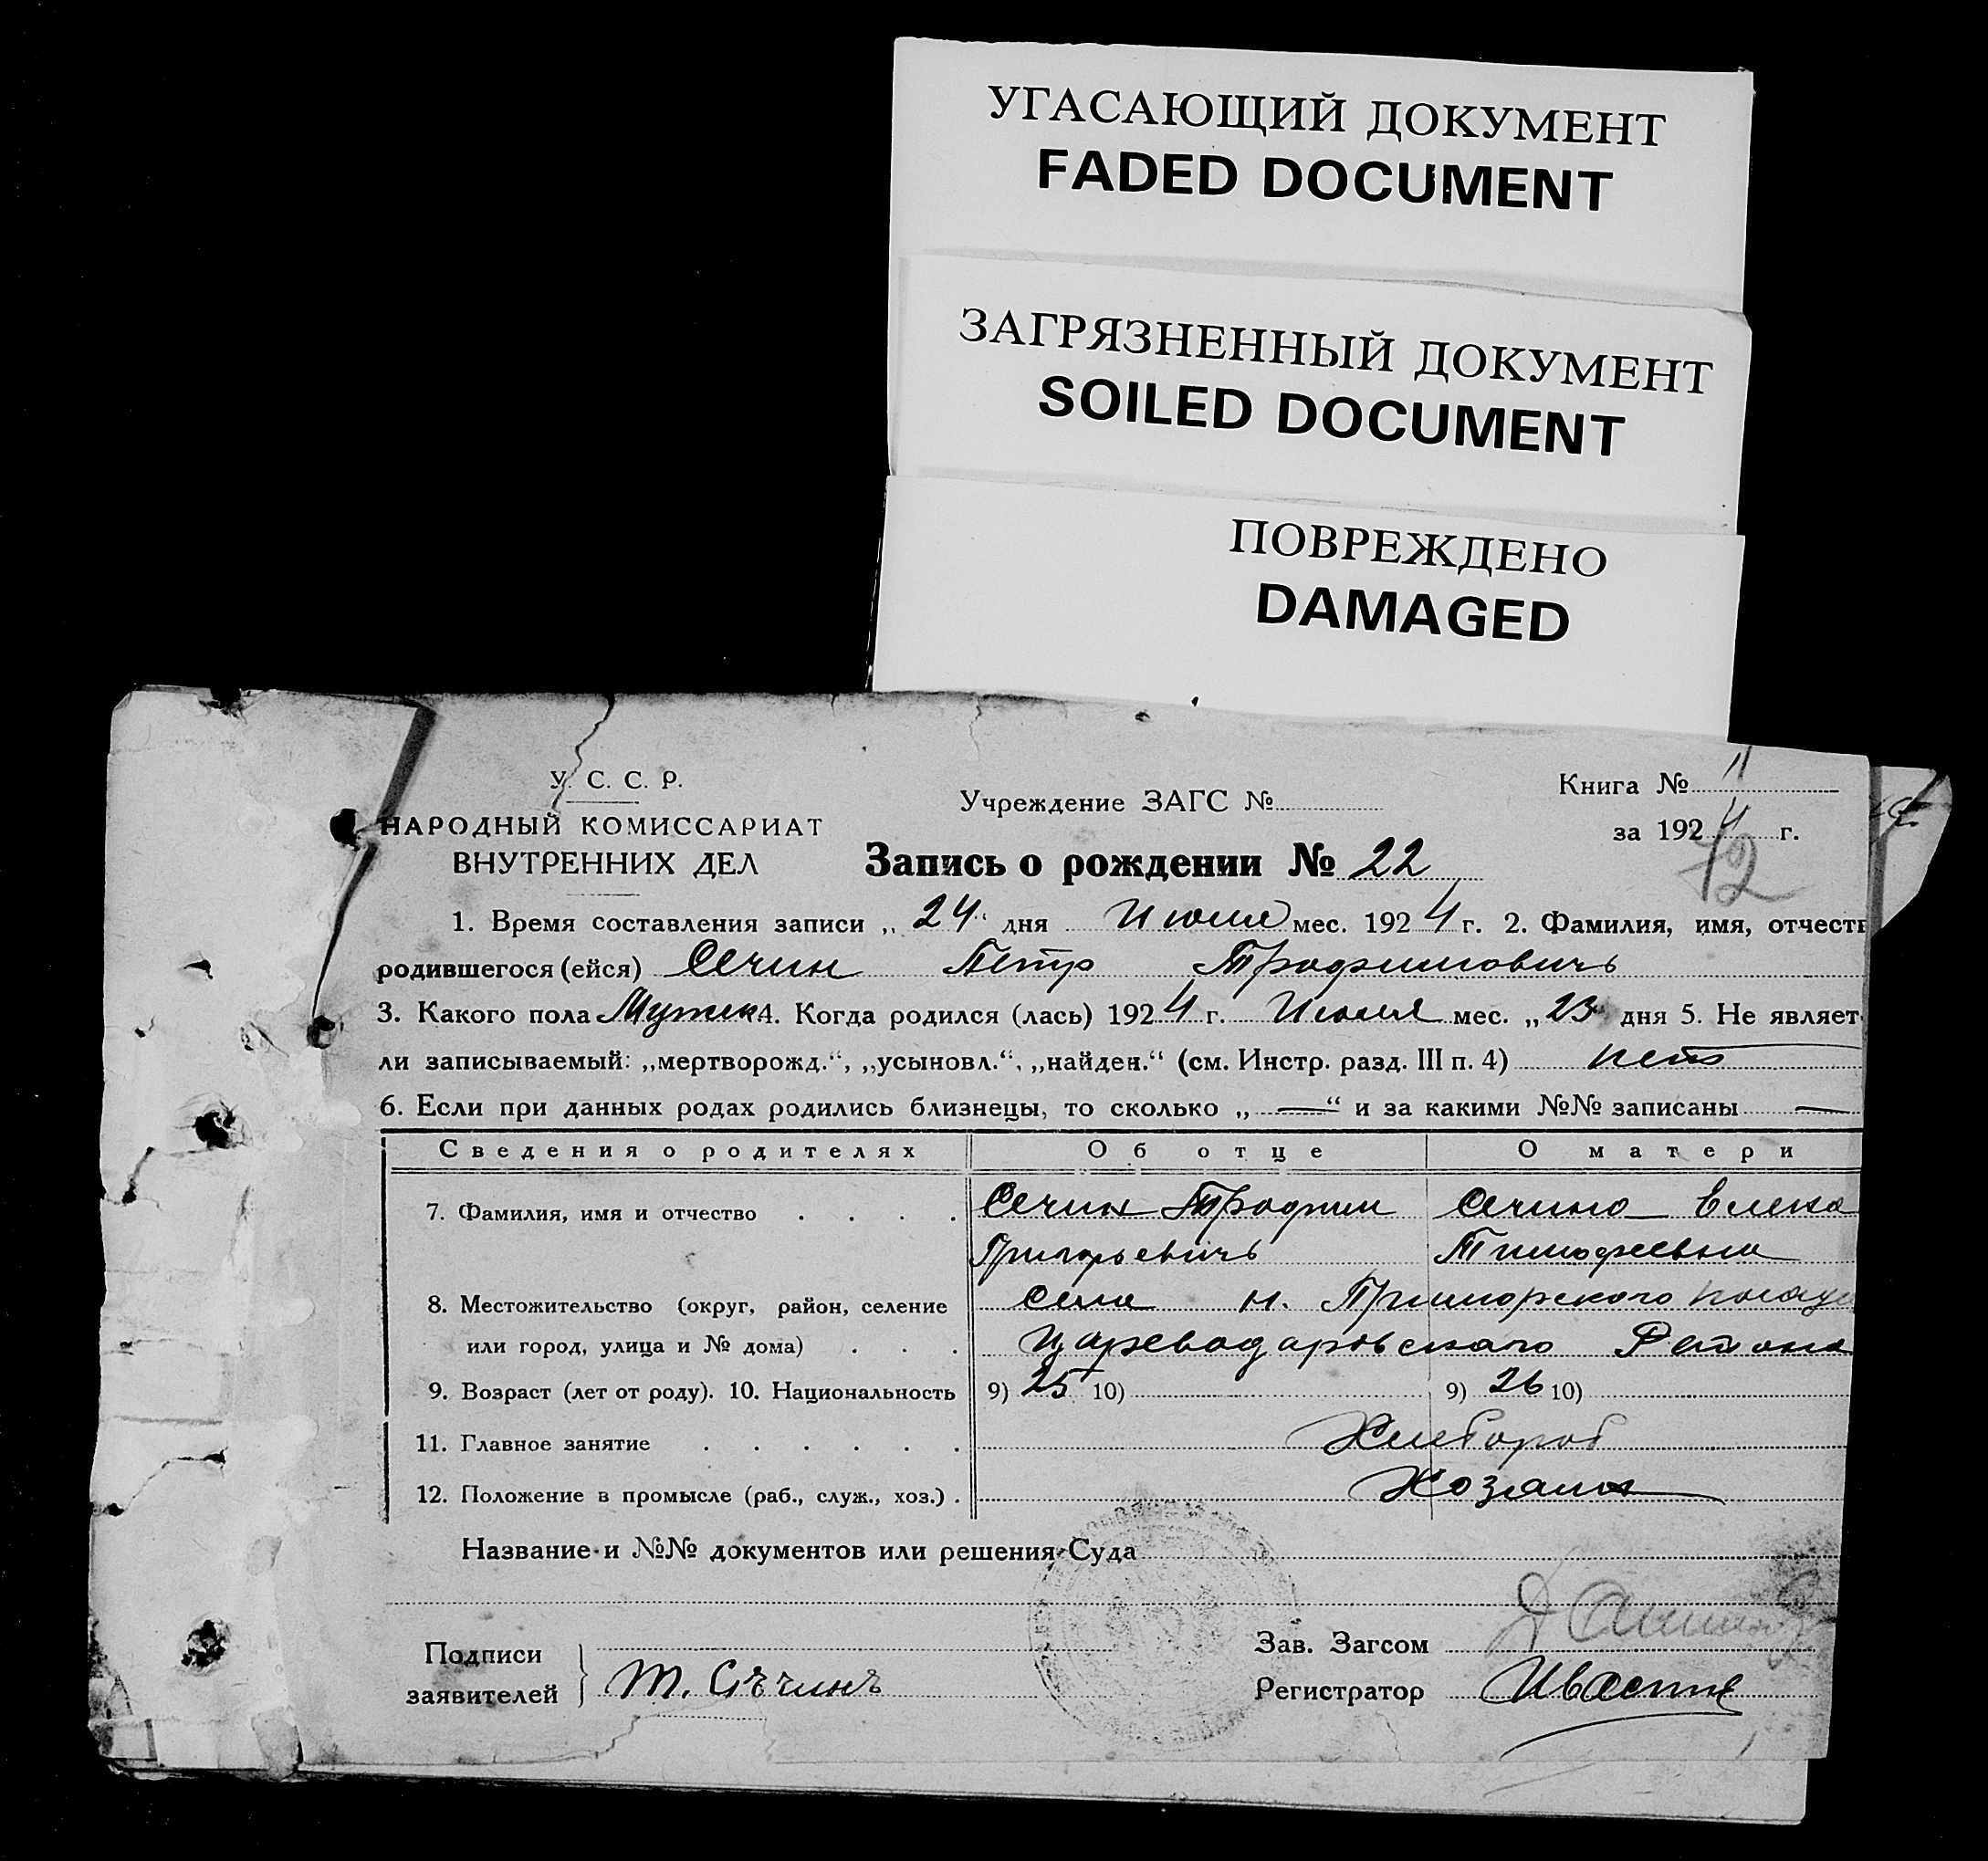 УГАСАЮЩИЙ ДОКУМЕНТ
FADED DOCUMENT
ЗАГРЯЗНЕННЫЙ ДОКУМЕНТ
SOILED DOCUMENT
ПОВРЕЖДЕНО
DAMAGED
У. С. С. Р.
НАРОДНЫЙ КОМИССАРИАТ
ВНУТРЕННИХ ДЕЛ
Учреждение ЗАГС №
Книга № 11
за 1924 г.
72
Запись о рождении № 22
1. Время составления записи „ 24 “ дня Июля мес. 1924 г. 2. Фамилия, имя, отчеств
родившегося (ейся) Сечин Петр Трофимовичъ
3. Какого пола Мужск 4. Когда родился (лась) 1924 г. Июля мес. „ 23 “ дня 5. Не являет
ли записываемый: „мертворожд.“, „усыновл.“, „найден.“ (см. Инстр. разд. III п. 4) нетъ
6. Если при данных родах родились близнецы, то сколько „ — “ и за какими №№ записаны —
Сведения о родителях Об отце О матери
7. Фамилия, имя и отчество . . . . Сечин Трофим Сечина Елена
Григорьевичъ Тимофеевна
8. Местожительство (округ, район, селение Села Н. Приморского
или город, улица и № дома) . . . Цареводаровского Района
9. Возраст (лет от роду). 10. Национальность 9) 25 10) 9) 26 10)
11. Главное занятие . . . . . . Хлебороб
12. Положение в промысле (раб., служ., хоз.) . Хозяин
Название и №№ документов или решения Суда
Подписи
заявителей } Т. Сѣчинъ
Зав. Загсом
Регистратор